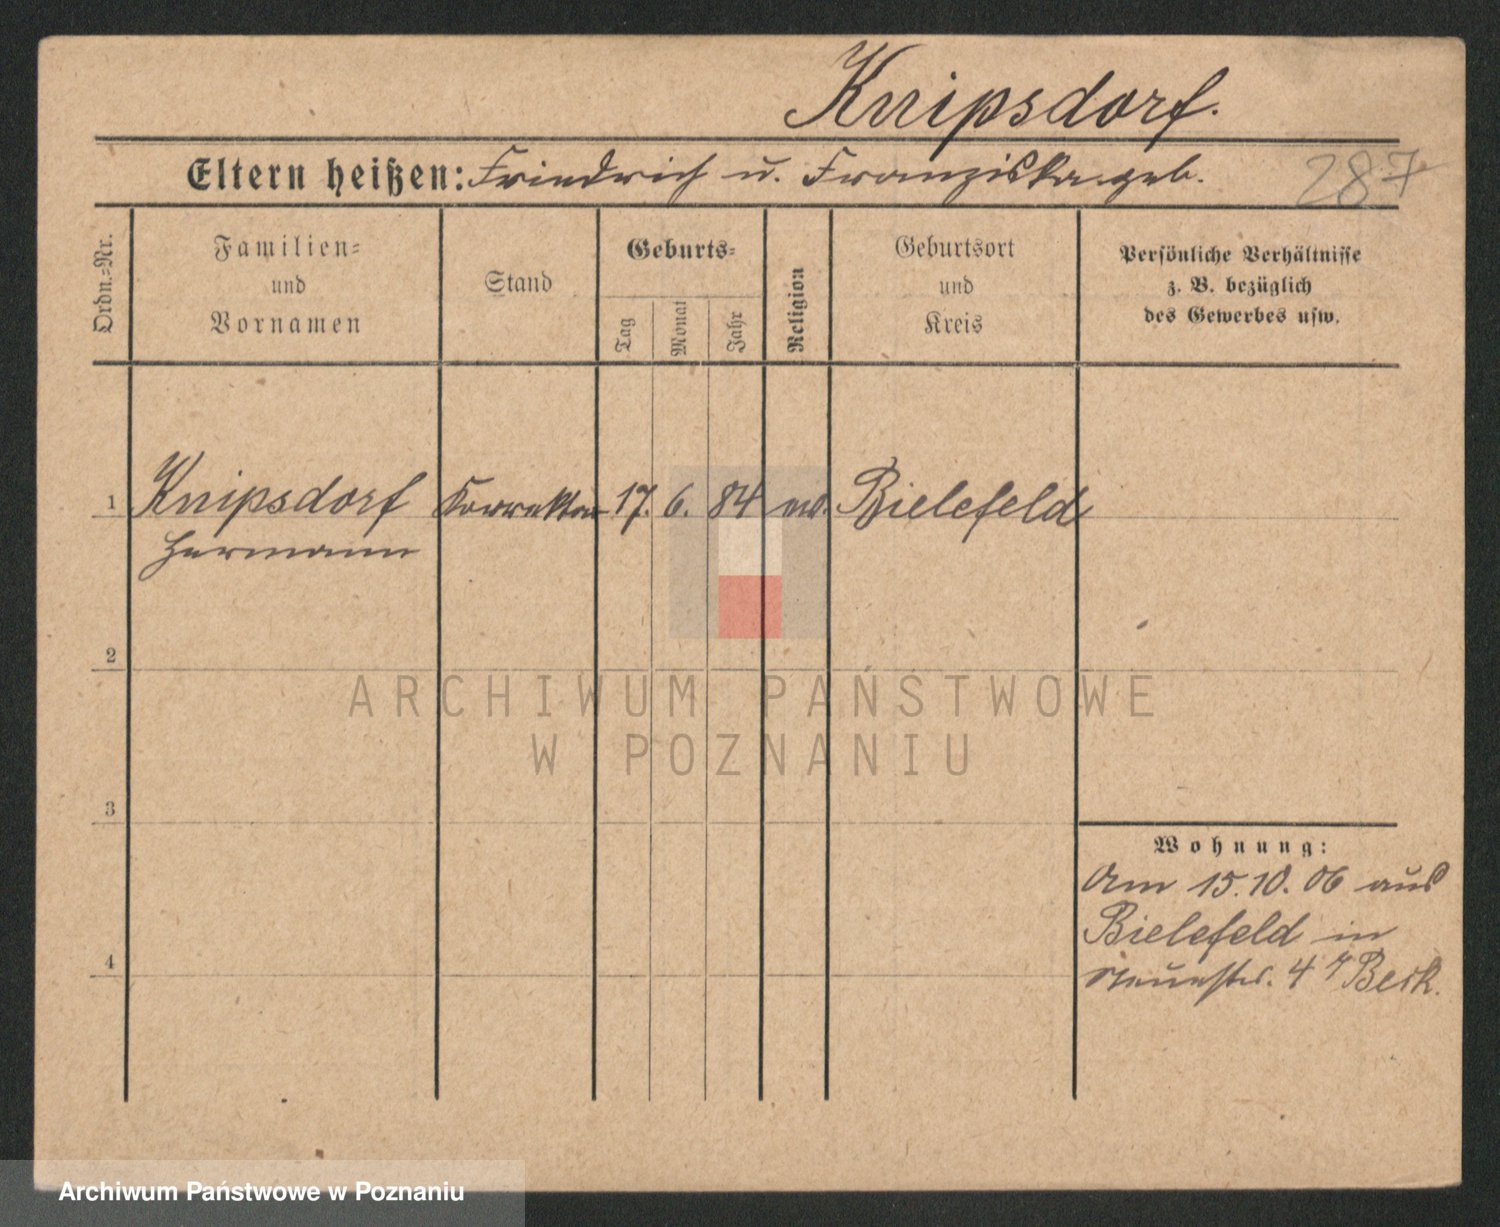 Knipsdorf.
Eltern heißen: Friedrich u. Franziska geb.
287
Ordn.=Nr.
Familien=
und
Vornamen
Stand
Geburts=
Tag
Monat
Jahr
Religion
Geburtsort
und
Kreis
Persönliche Verhältnisse
z. B. bezüglich
des Gewerbes usw.
1 Knipsdorf Korrektor 17. 6. 84 ev. Bielefeld
Hermann
2
ARCHIWUM PAŃSTWOWE
W POZNANIU
3
Wohnung:
Am 15.10.06 aus
Bielefeld in
4
Neuestr. 4 Besk.
Archiwum Państwowe w Poznaniu